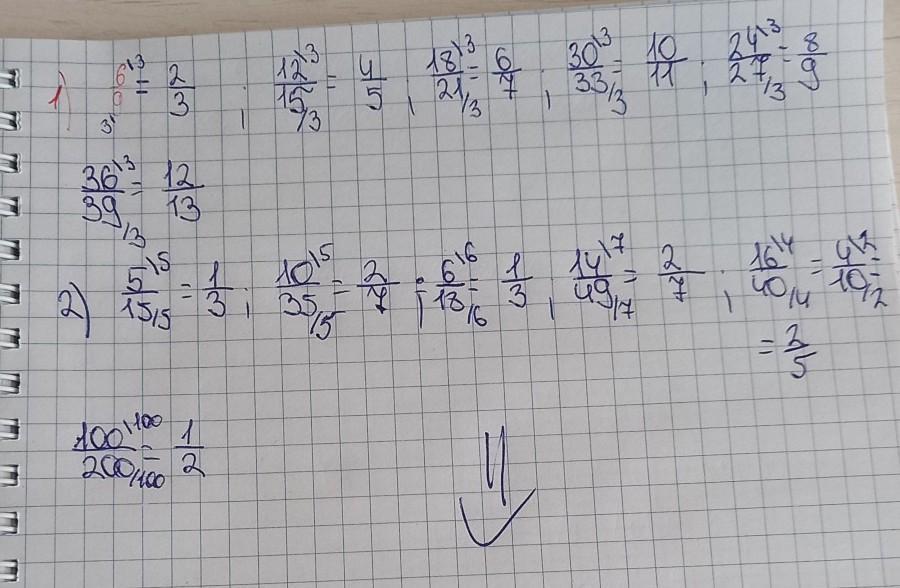 1) 6\3/9/3 = 2/3 ; 12\3/15/3 = 4/5 ; 18\3/21/3 = 6/7 ; 30\3/33/3 = 10/11 ; 24\3/27/3 = 8/9
36\3/39/3 = 12/13
2) 5\5/15/5 = 1/3 ; 10\5/35/5 = 2/7 ; 6\6/18/6 = 1/3 ; 14\7/49/7 = 2/7 ; 16\4/40/4 = 4\2/10/2 =
= 2/5
100\100/200/100 = 1/2